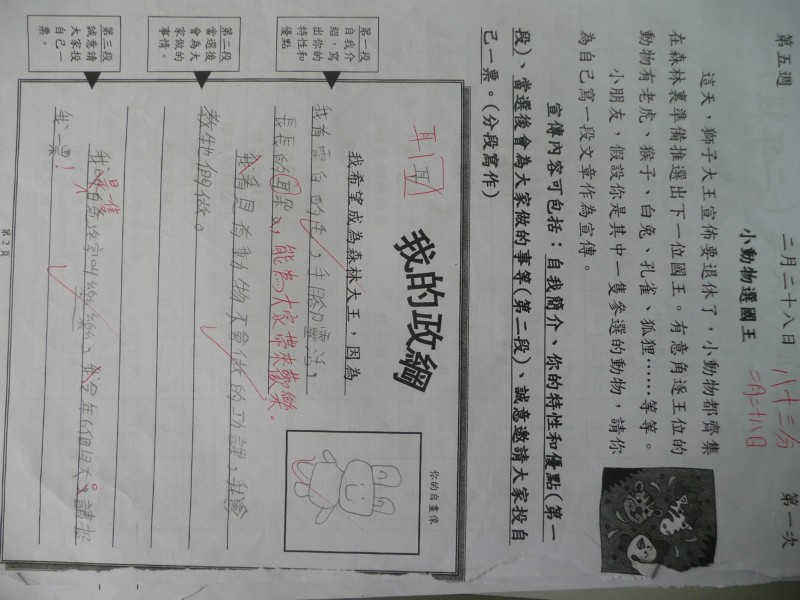 第五週 二月二十八日 第一次
八十三分
二月二十八日
小動物選國王
這天，獅子大王宣佈要退休了，小動物都齊集
在森林裏準備推選出下一位國王。有意角逐王位的
動物有老虎、猴子、白兔、孔雀、狐狸……等等。
小朋友，假設你是其中一隻參選的動物，請你
為自己寫一段文章作為宣傳。
宣傳內容可包括：自我簡介、你的特性和優點(第一
段)、當選後會為大家做的事等(第二段)、誠意邀請大家投自
己一票。(分段寫作)
我的政綱
你的自畫像
耳 耳
第一段
自我介
紹，寫
出你的
特性和
優點
第二段
當選後
會為大
家做的
事情。
第三段
誠意請
大家投
自己一
票。
我希望成為森林大王，因為
我有雪白的毛，手腳靈活，
長長的耳朵，能為大家帶來歡樂。
我看見有動物不會做的功課，我會
教牠們做。
今年6個月大。請投
我一票！
第2頁